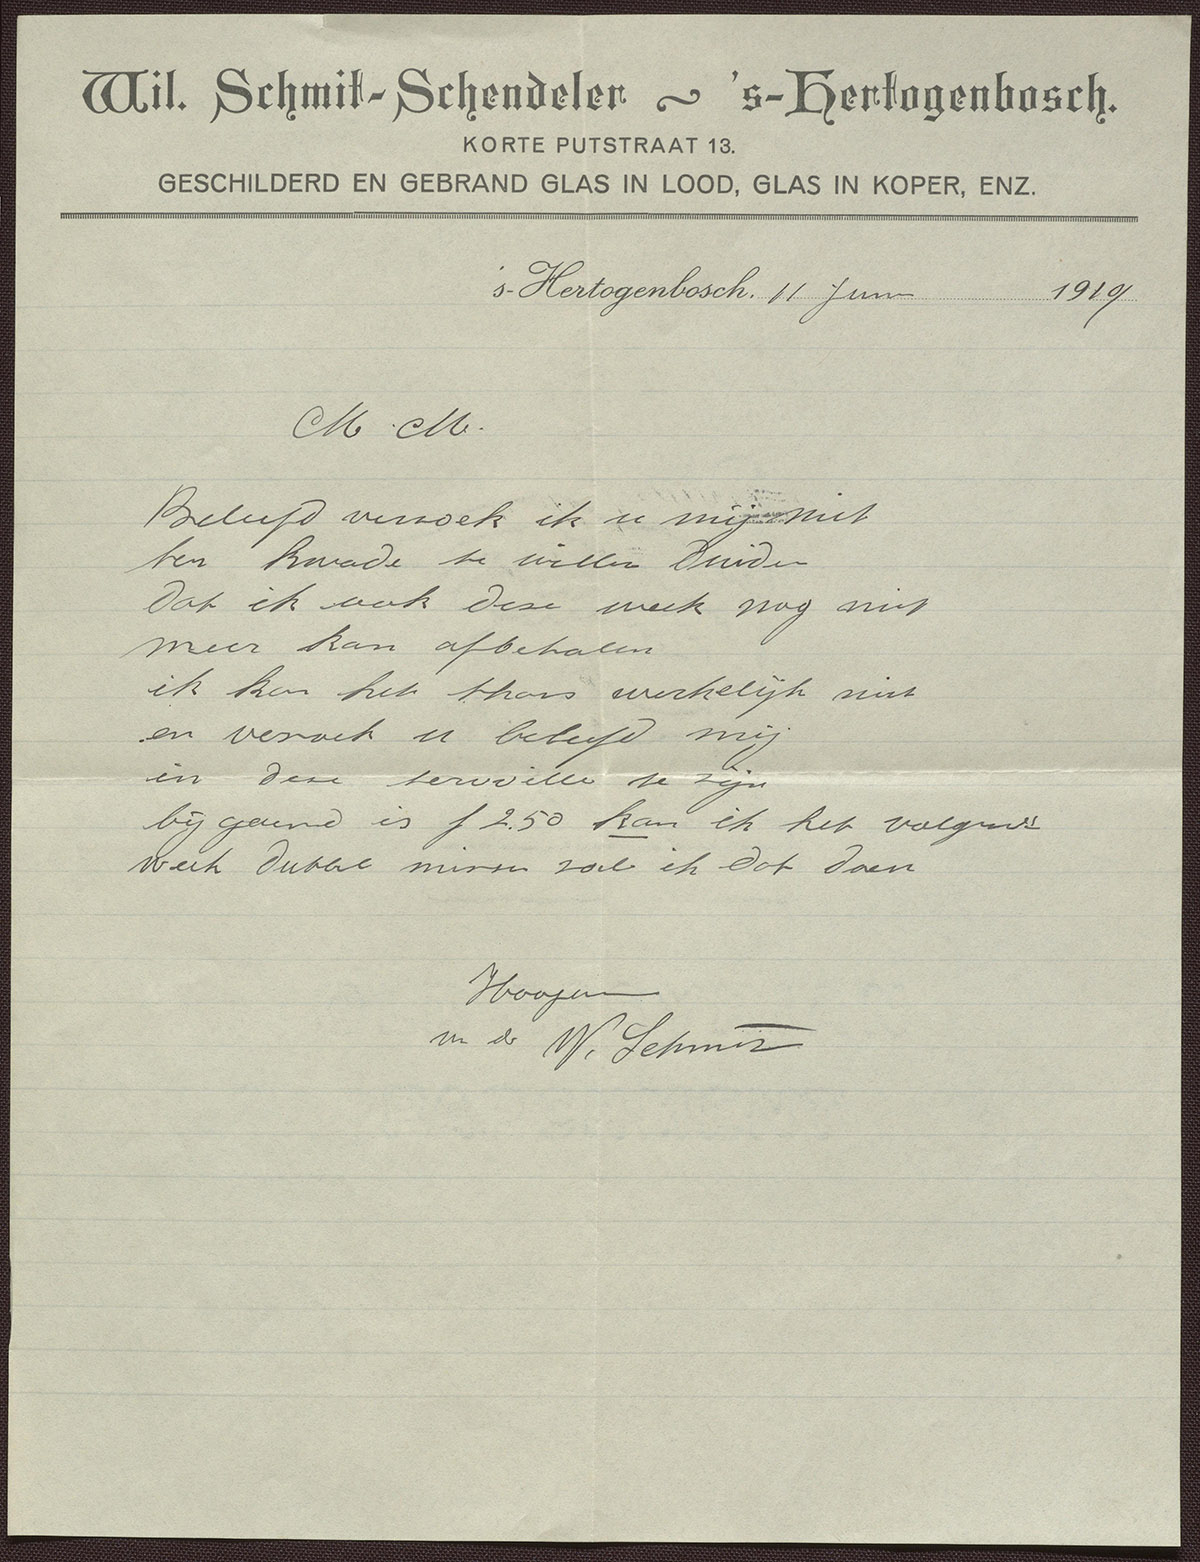 Wil. Schmit-Schendeler ~ 's-Hertogenbosch.
KORTE PUTSTRAAT 13.
GESCHILDERD EN GEBRAND GLAS IN LOOD, GLAS IN KOPER, ENZ.
's-Hertogenbosch. 11 Juni 1919
M. M.
Beleefd verzoek ik u mij niet
ten kwade te willen duiden
dat ik ook deze week nog niet
meer kan afbetalen
ik kan het thans werkelijk niet
en verzoek u beleefd mij
in deze terwille te zijn
bijgaand is f 2.50 kan ik het volgende
week dubbel missen zal ik dat doen
Hoogen
W. Schmit